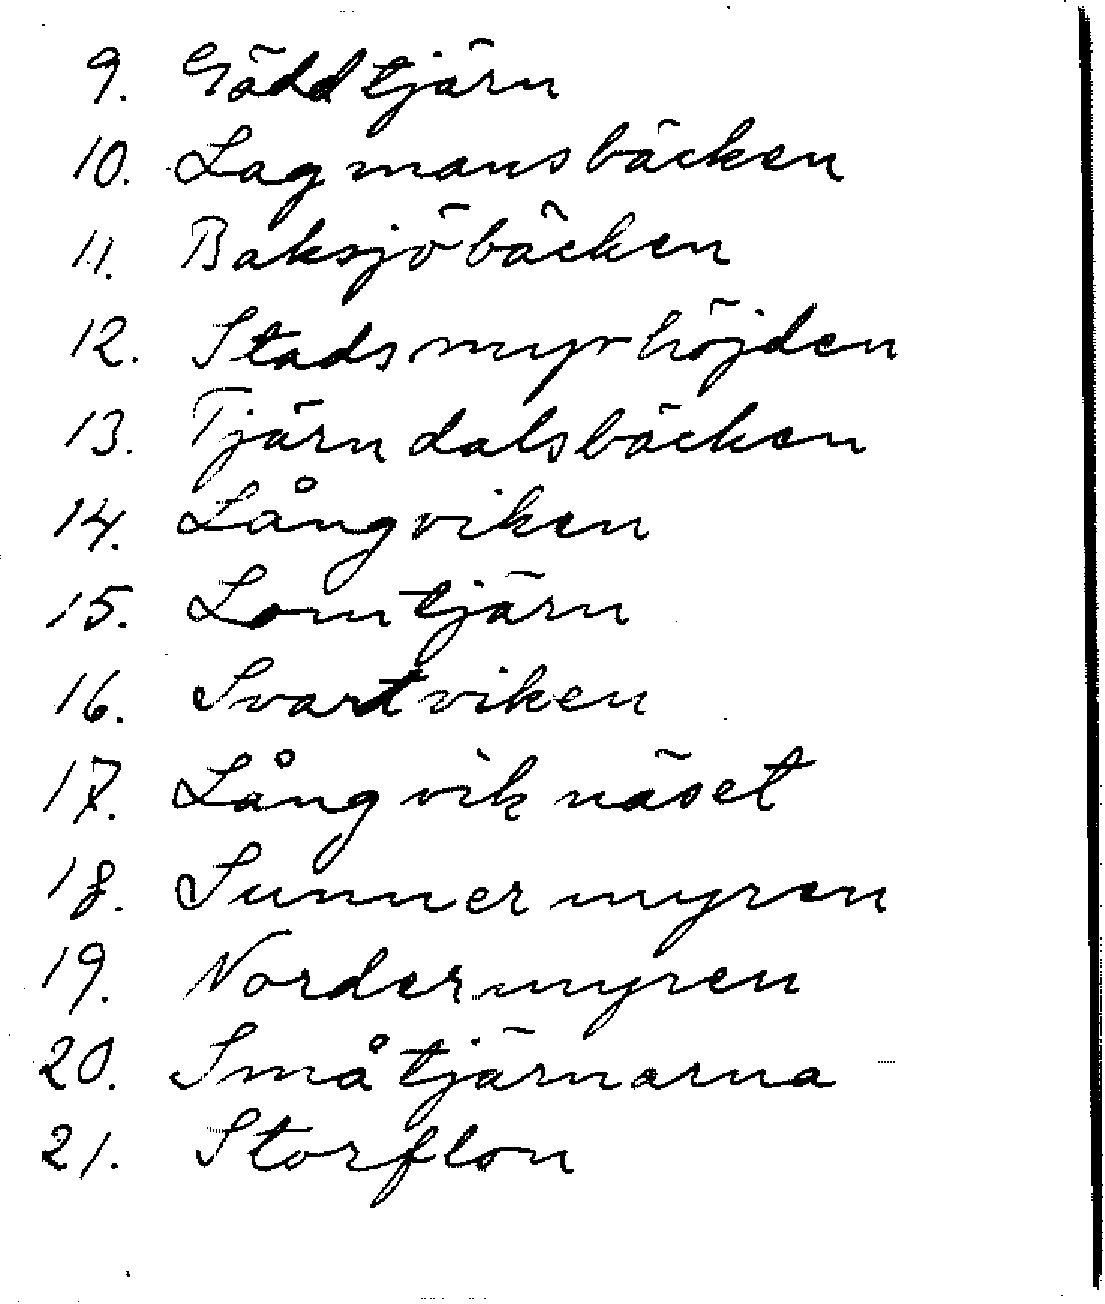 9. Gäddtjärn
10. Lagmansbäcken
11. Baksjöbäcken
12. Stadsmyrhöjden
13. Tjärndalsbäcken
14. Långviken
15. Lomtjärn
16. Svartviken
17. Långviknäset
18. Sunnermyren
19. Nordermyren
20. Småtjärnarna
21. Storflon